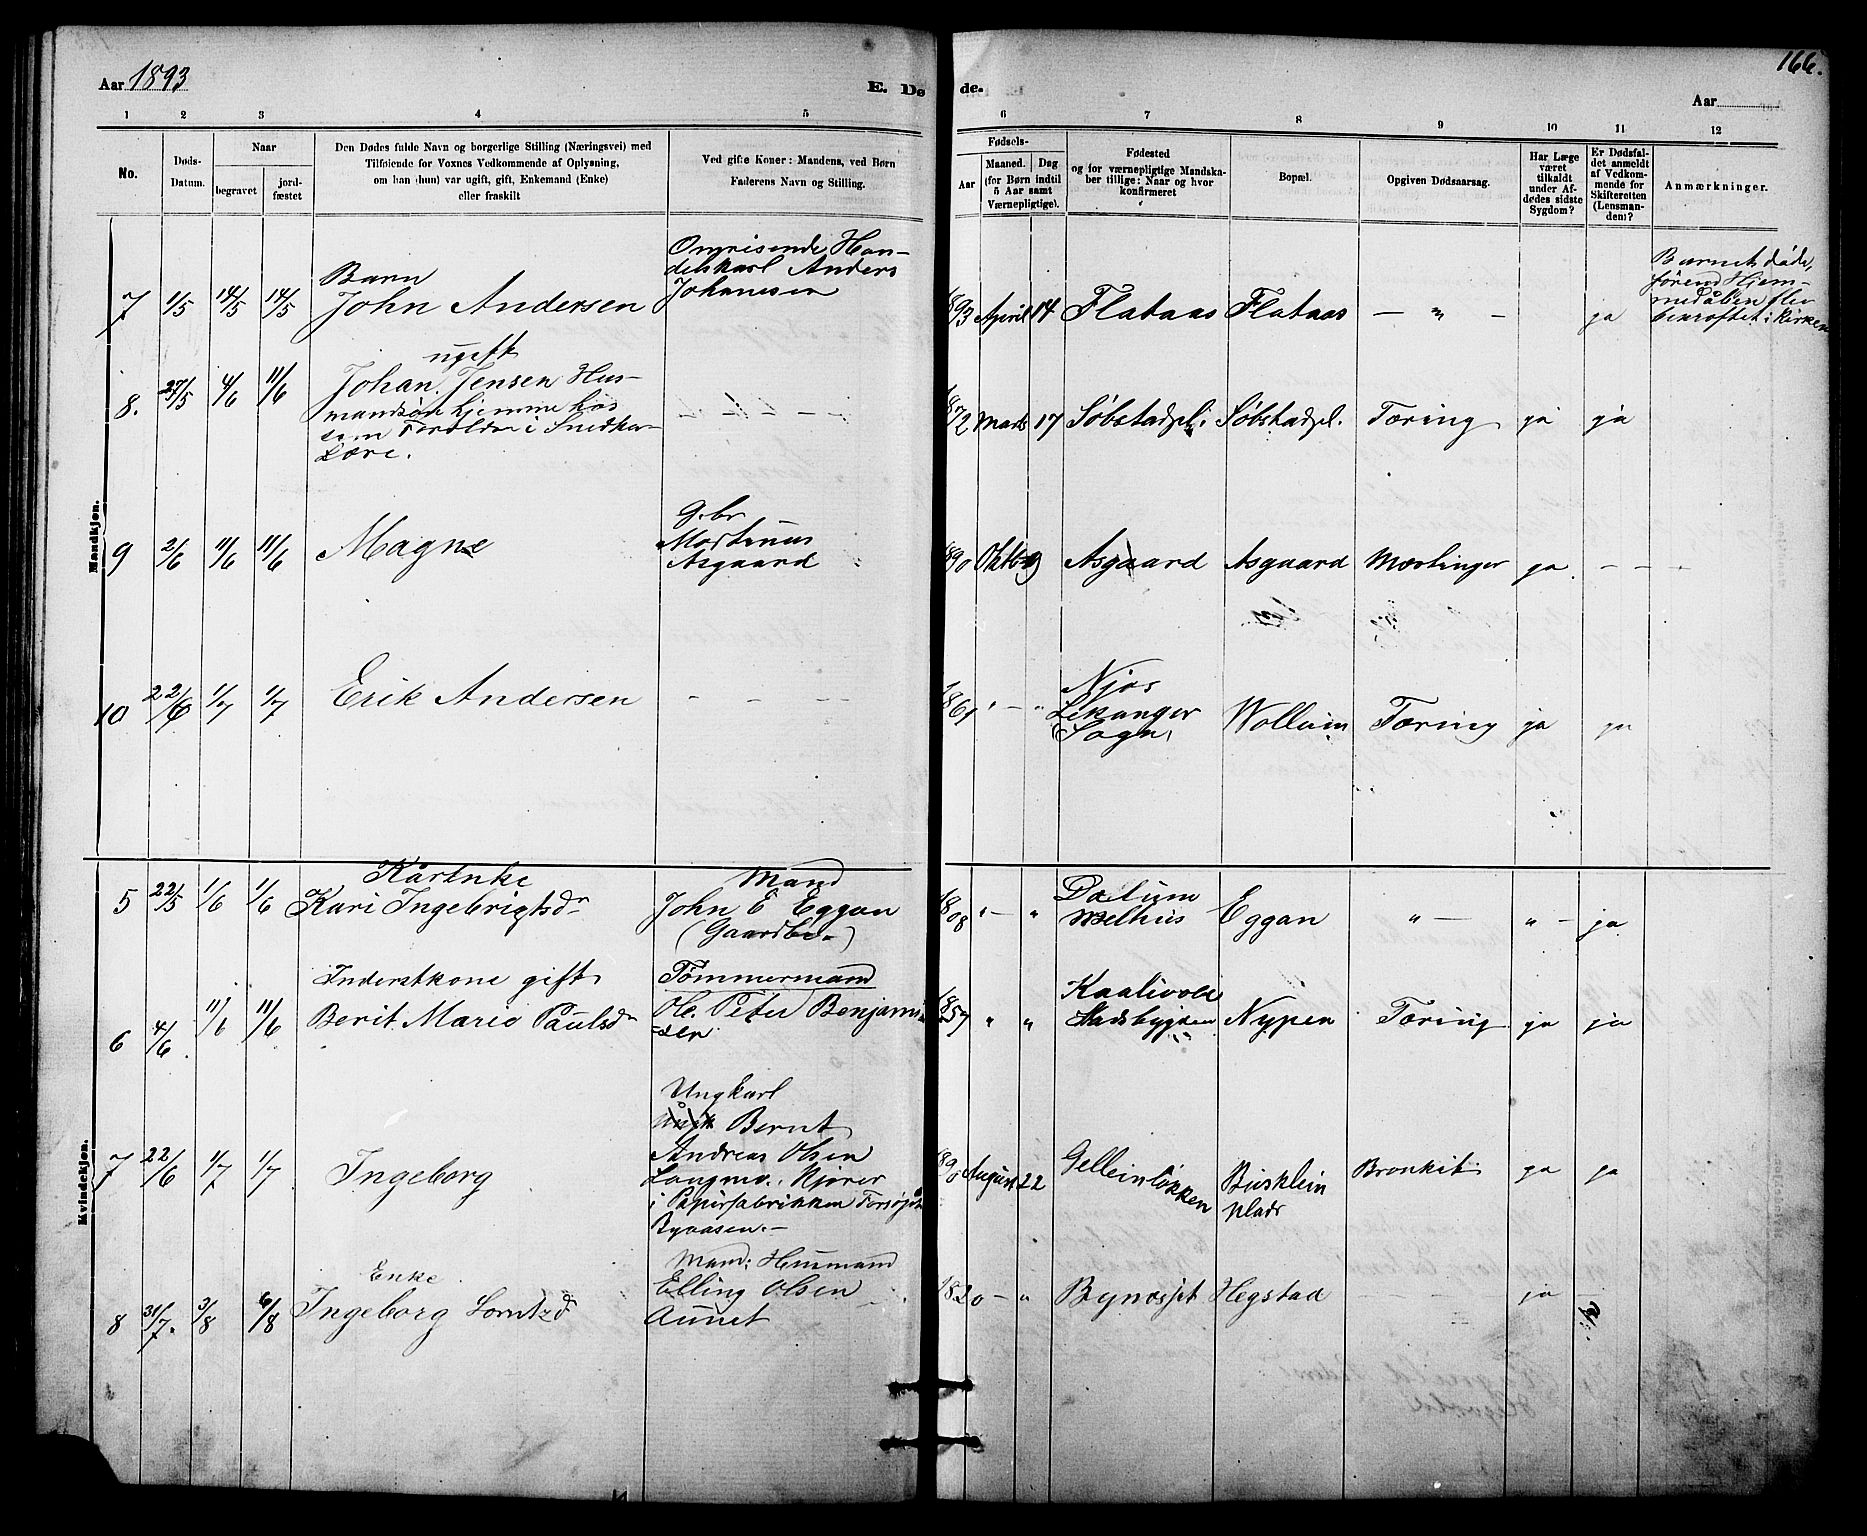 Aar 1893
E. Dø
de.
166.
Aar
1 2 3 4 5 6 7 8 9 10 11 12
No.
Døds-
Datum.
Naar
begravet
jord-
fæstet
Den Dødes fulde Navn og borgerlige Stilling (Næringsvei) med
Tilføiende for Voxnes Vedkommende af Oplysning,
om han (hun) var ugift, gift, Enkemand (Enke)
eller fraskilt
Ved gifte Koner: Mandens, ved Børn
Faderens Navn og Stilling.
Fødsels-
Aar
Maaned. Dag
(for Børn indtil
5 Aar samt
Værnepligtige).
Fødested
og for værnepligtige Mandska-
ber tillige: Naar og hvor
konfirmeret
Bopæl.
Opgiven Dødsaarsag.
Har Læge
været
tilkaldt
under Af-
dødes sidste
Sygdom?
Er Dødsfal-
det anmeldt
af Vedkom-
mende for
Skifteretten
(Lensman-
den)?
Anmærkninger.
Mandkjøn.
7 1/5 14/5 14/5
Barn
John Andersen
Omreisende Han-
delskarl Anders
Johansen
1893 April 14 Flataas Flataas — " — ja
Barnet døde,
førend Hjem-
medåben blev
bekræftet i Kirken
8. 27/5 4/6 11/6
ugift
Johan Jensen Hus-
mandsøn hjemme hos
sem Foreldre i Snedker-
Lære.
1872 Marts 17 Søbstadpl. Søbstadpl. Tæring ja ja
9 2/6 11/6 11/6 Magne
G.br
Martinus
Asgaard
1890 Oktbr 9 Asgaard Asgaard Mæslinger ja - - -
10 22/6 1/7 1/7 Erik Andersen - - -
1861 " — "
Njøs
Lekanger
Sogn
Wollum Tæring ja ja
Kvindekjøn.
5 22/5 1/6 1/6
Kårenke
Kari Ingebrigtsdr
Mand
John E Eggan
(Gaardbr.)
1808 " — "
Melhus Eggan " — " — ja
6 4/6 11/6 11/6
Inderstkone gift
Berit Marie Paulsdr
Tømmermand
Ole Peter Benjamin
-sen
1857 " "
Kaalivold
Stadsbygden Nypen Tæring ja ja
7 22/6 1/7 1/7 Ingeborg
Ungkarl
Bernt
Andreas Olsen
Langmo, Kjører
i Papirfabrikken
Byaasen.-
1890 August 22 Gelleinløkken
Busklein
plads
Bronkit ja ja
8 31/7. 3/8 6/8
Enke
Ingeborg Lorntzd
Mand: Husmand
Elling Olsen
Aunet
1820 — " Bynæsset Hegstad ja